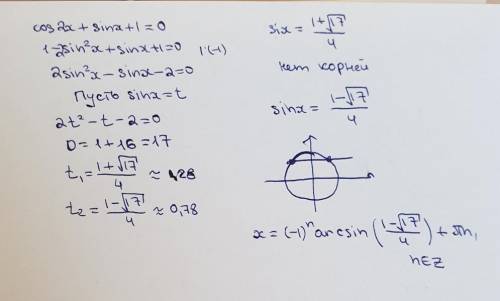 cos2x + sinx + 1 = 0
1-2sin²x + sinx + 1 = 0 | · (-1)
2sin²x - sinx - 2 = 0
Пусть sinx = t
2t² - t - 2 = 0
D = 1 + 16 = 17
t₁ = (1+√17)/4 ≈ 1,28
t₂ = (1-√17)/4 ≈ 0,78
six = (1+√17)/4
нет корней
sinx = (1-√17)/4
x = (-1)ⁿ arcsin ((1-√17)/4) + πn,
n∈Z